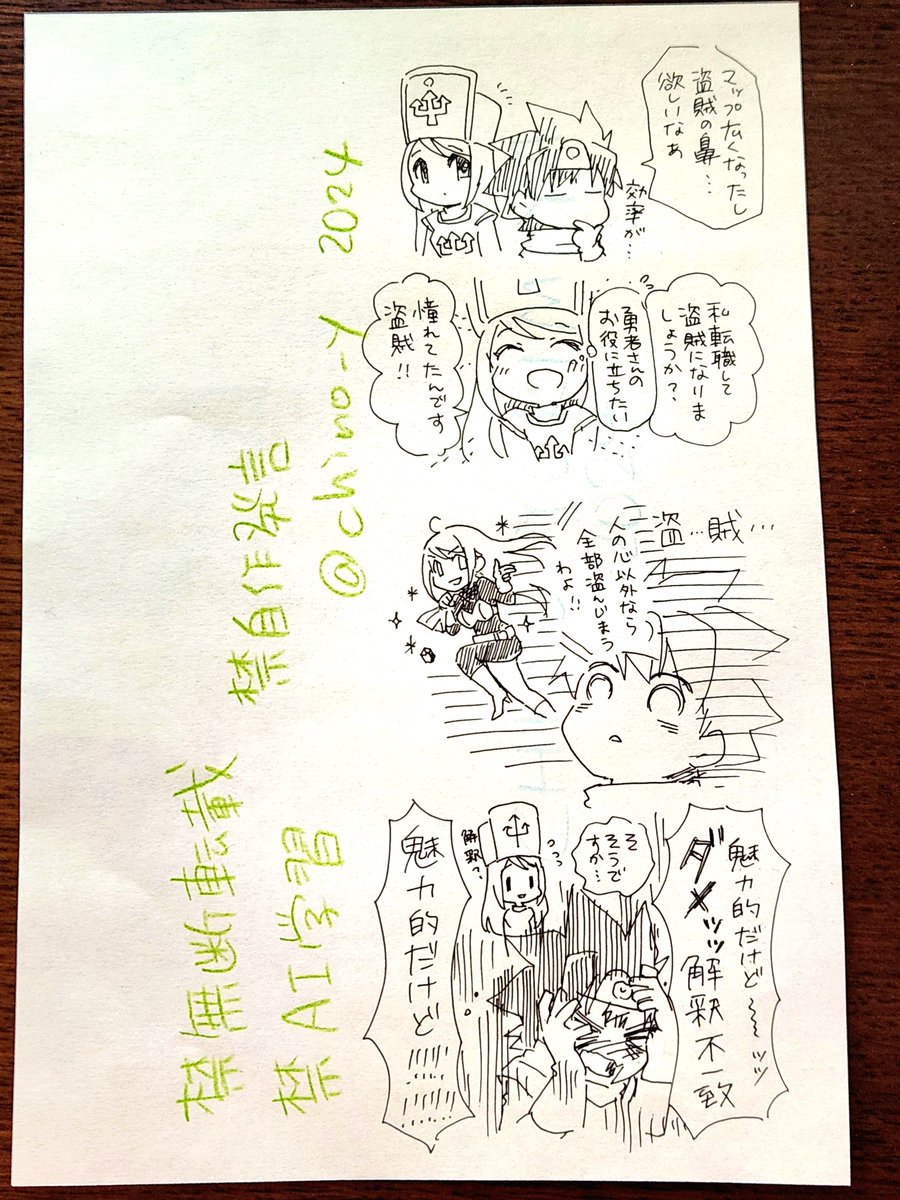 マップ広くなったし
盗賊の鼻…
欲しいなぁ
効率が…
私転職して
盗賊になりま
しょうか?
勇者さんの
お役に立ちたい
憧れてたんです
盗賊!!
盗…賊…
人の心以外なら
全部盗んじまう
わよ!!
魅力的だけど〜〜ッッ
ダメッッ解釈不一致
そ
そうで
すか…
解釈?
魅力的だけど
禁無断転載
禁AI学習
禁自作発言
@chino-Y 2024